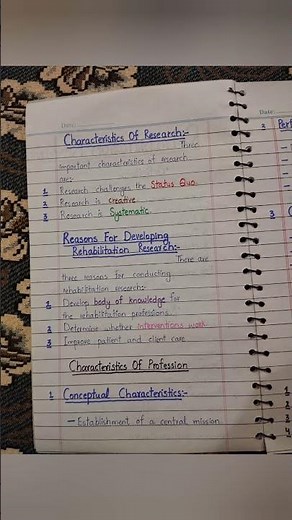 Date:
Characteristics Of Research:-
Three
important characteristics of research
are:-
1 Research challenges the Status Quo.
2 Research is creative.
3 Research is Systematic.
Reasons For Developing
Rehabilitation Research:-
There are
three reasons for conducting
rehabilitation research:-
1 Develop body of knowledge for
the rehabilitation professions.
2 Determine whether interventions work
3 Improve patient and client care
Characteristics Of Profession
1 Conceptual Characteristics:-
— Establishment of a central mission
Date:
2
3
1
2
3
4